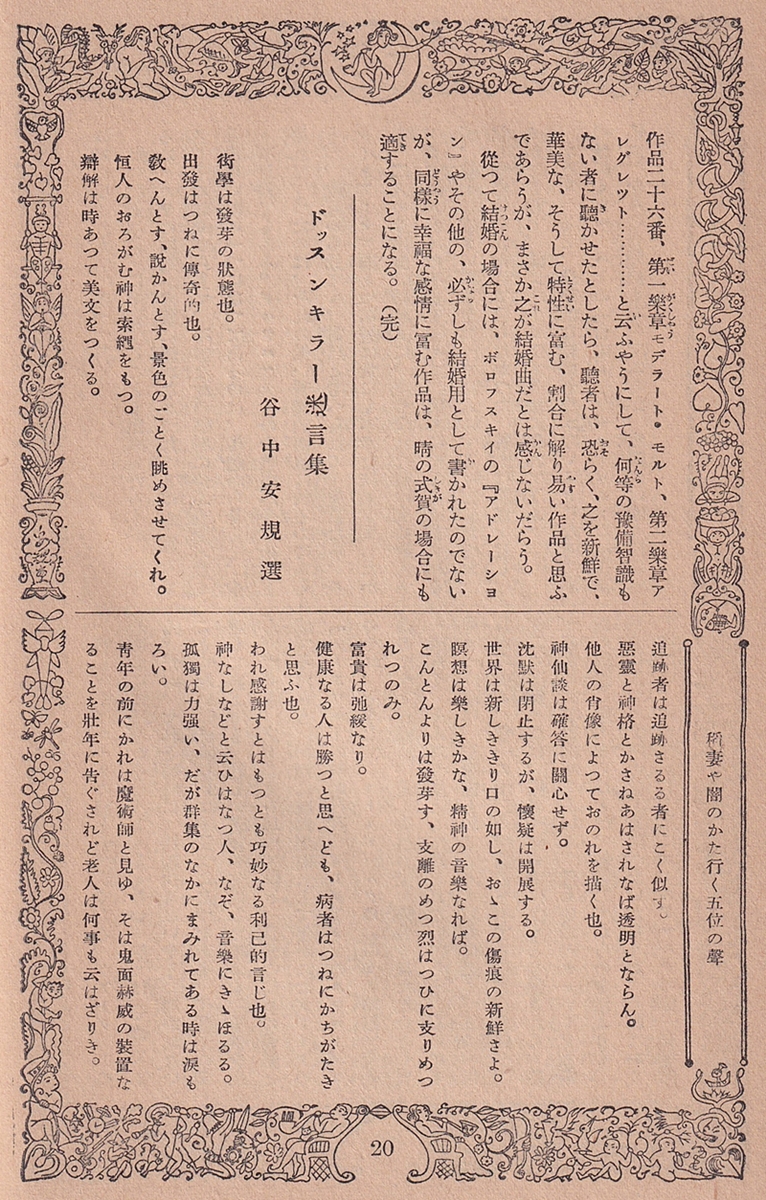 作品二十六番、第一樂章モデラート・モルト、第二樂章ア
レグレツト…………と云ふやうにして、何等の豫備智識も
ない者に聽かせたとしたら、聽者は、恐らく、之を新鮮で、
華美な、そうして特性に富む、割合に解り易い作品と思ふ
であらうが、まさか之が結婚曲だとは感じないだらう。
從つて結婚の場合には、ボロフスキイの『アドレーショ
ン』やその他の、必ずしも結婚用として書かれたのでない
が、同樣に幸福な感情に富む作品は、晴の式賀の場合にも
適することになる。（完）
ドッスンキラー言集
谷中安規選
街學は發芽の狀態也。
出發はつねに傳奇的也。
敎へんとす、說かんとす、景色のごとく眺めさせてくれ。
恒人のおろがむ神は索繩をもつ。
辯解は時あつて美文をつくる。
稻妻や闇のかた行く五位の聲
追跡者は追跡さるる者にこく似す。
惡靈と神格とかさねあはされなば透明とならん。
他人の肖像によつておのれを描く也。
神仙談は確答に關心せず。
沈默は閉止するが、懷疑は開展する。
世界は新しききり口の如し、おゝこの傷痕の新鮮さよ。
瞑想は樂しきかな、精神の音樂なれば。
こんとんよりは發芽す、支離のめつ烈はつひに支りめつ
れつのみ。
富貴は弛緩なり。
健康なる人は勝つと思へども、病者はつねにかちがたき
と思ふ也。
われ感謝すとはもつとも巧妙なる利己的言じ也。
神なしなどと云ひはなつ人、なぞ、音樂にきゝほるる。
孤獨は力强い、だが群集のなかにまみれてある時は淚も
ろい。
靑年の前にかれは魔術師と見ゆ、そは鬼面赫威の裝置な
ることを壯年に告ぐされど老人は何事も云はざりき。
20